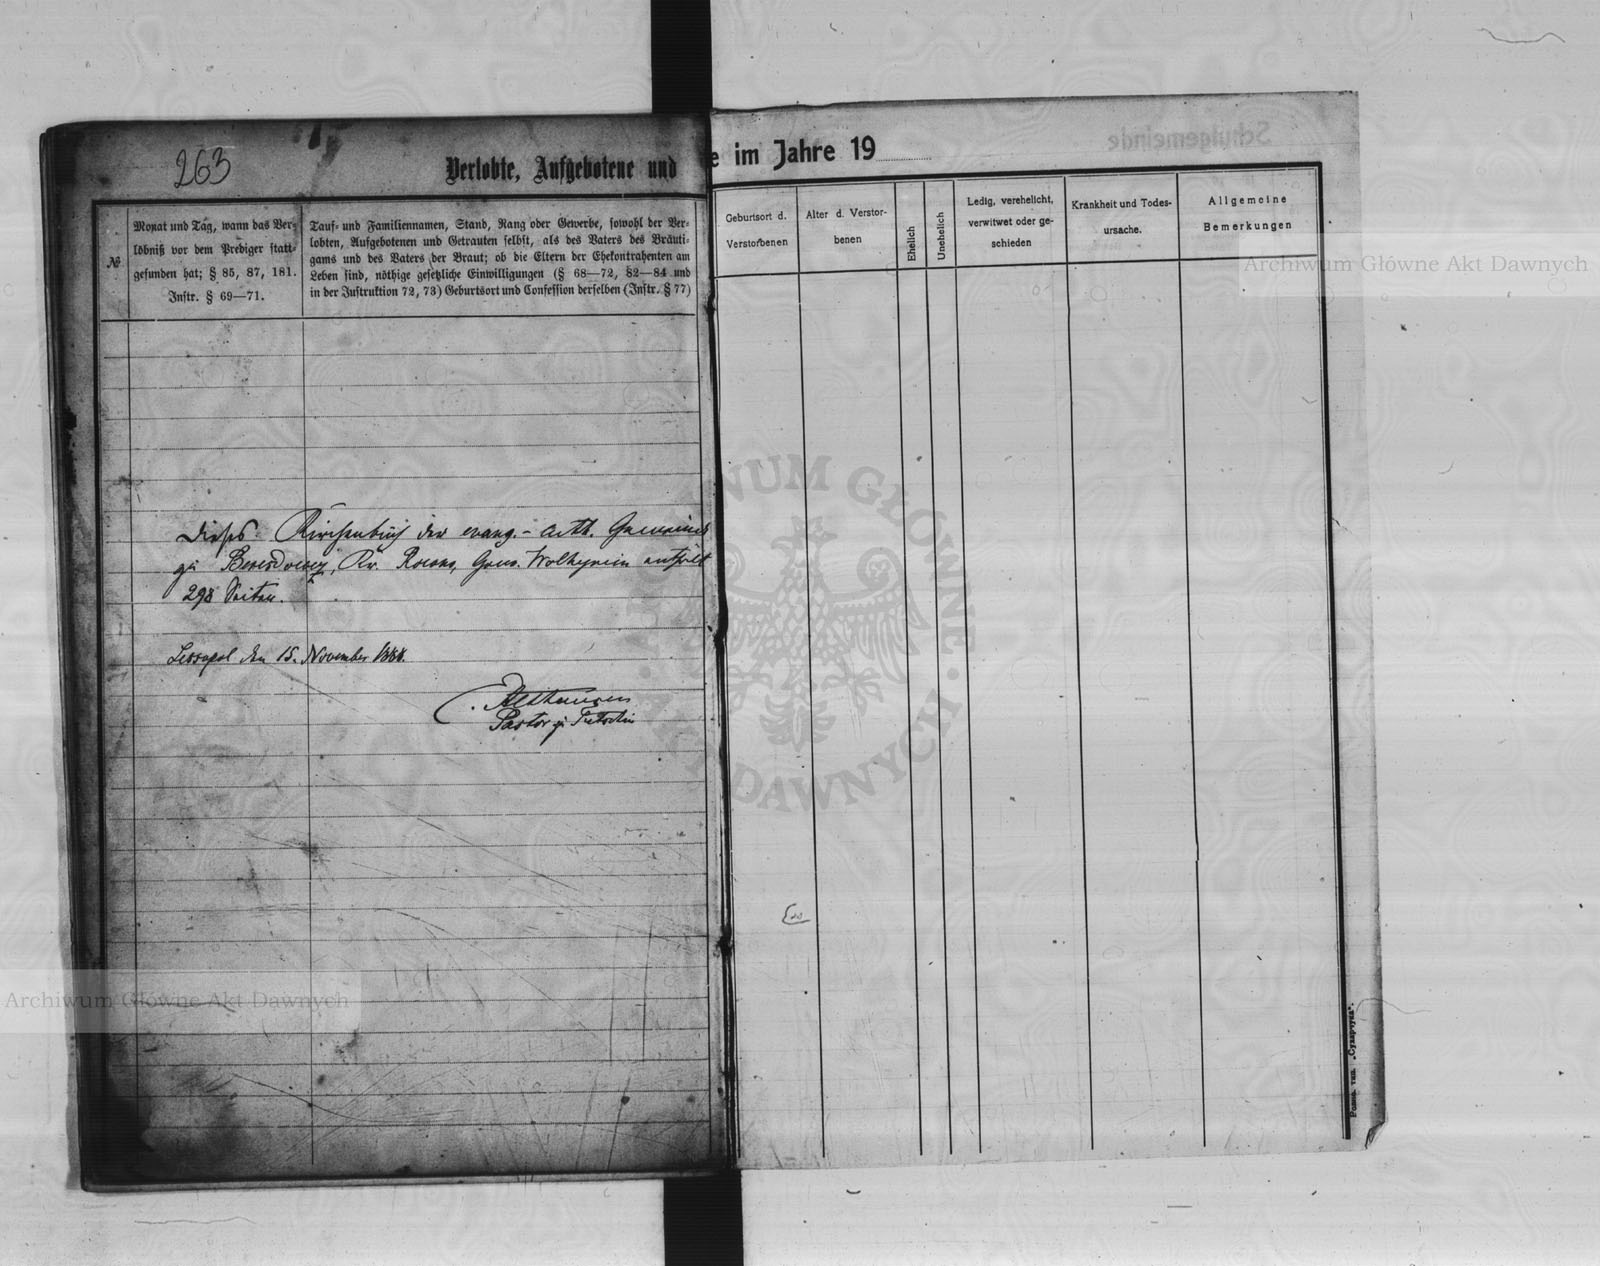 263
Verlobte, Aufgebotene und
№
Monat und Tag, wann das Ver-
löbniß vor dem Prediger statt-
gefunden hat; § 85, 87, 181.
Instr. § 69—71.
Tauf- und Familiennamen, Stand, Rang oder Gewerbe, sowohl der Ver-
lobten, Aufgebotenen und Getrauten selbst, als des Vaters des Bräuti-
gams und des Vaters der Braut; ob die Eltern der Ehekontrahenten am
Leben sind, nöthige gesetzliche Einwilligungen (§ 68—72, 82—84 und
in der Instruktion 72, 73) Geburtsort und Confession derselben (Instr. § 77)
Dieses Kirchenbuch der evang.- luth. Gemeinde
zu Kr. Rowno, Gouv. Wolhynien enthält
298 Seiten.
den 15. November 1888.
Althausen
Pastor zu Tutschin
e im Jahre 19
Geburtsort d.
Verstorbenen
Alter d. Verstor-
benen
Ehelich
Unehelich
Ledig, verehelicht,
verwitwet oder ge-
schieden
Krankheit und Todes-
ursache.
Allgemeine
Bemerkungen
Schulgemeinde
Archiwum Główne Akt Dawnych
Archiwum Główne Akt Dawnych